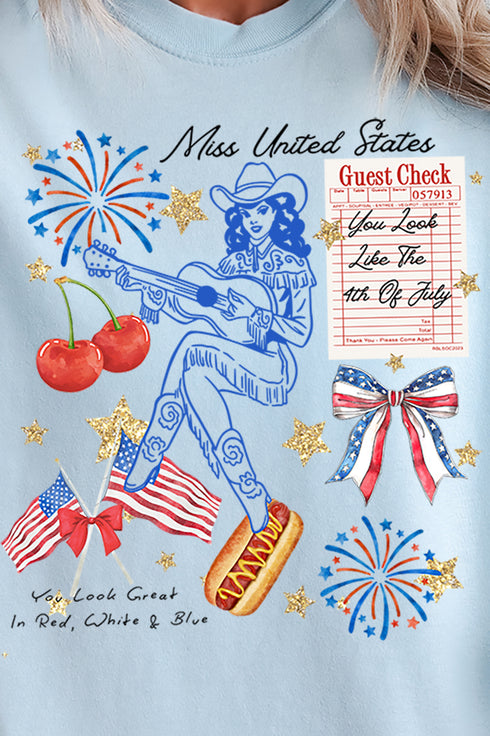 Miss United States
Guest Check
Date Table Guests Server
057913
APPT - SOUP/SAL - ENTREE - VEG/POT - DESSERT - BEV
You Look
Like The
4th Of July
Tax
Total
Thank You - Please Come Again
You Look Great
In Red, White & Blue